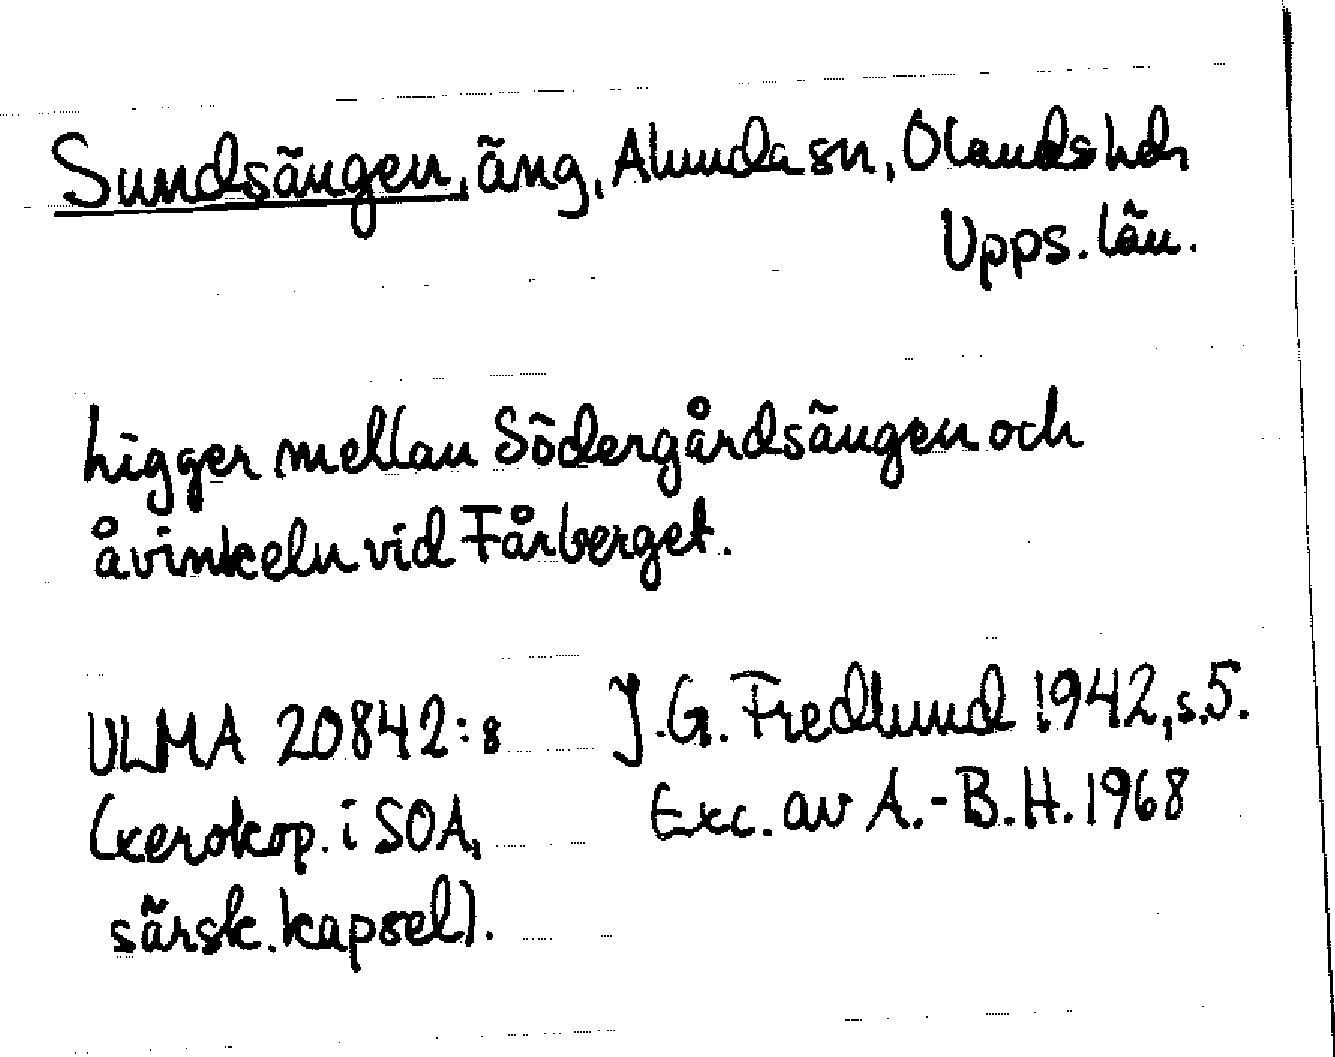 Sundsängen, äng, Alunda sn, Olands hd,
Upps. län.
Ligger mellan Södergårdsängen och
åvinkeln vid Fårberget.
ULMA 20842:8 J.G. Fredlund 1942, s.5.
(xerokop. i SOA, Exc. av A.-B.H. 1968
särsk. kapsel).